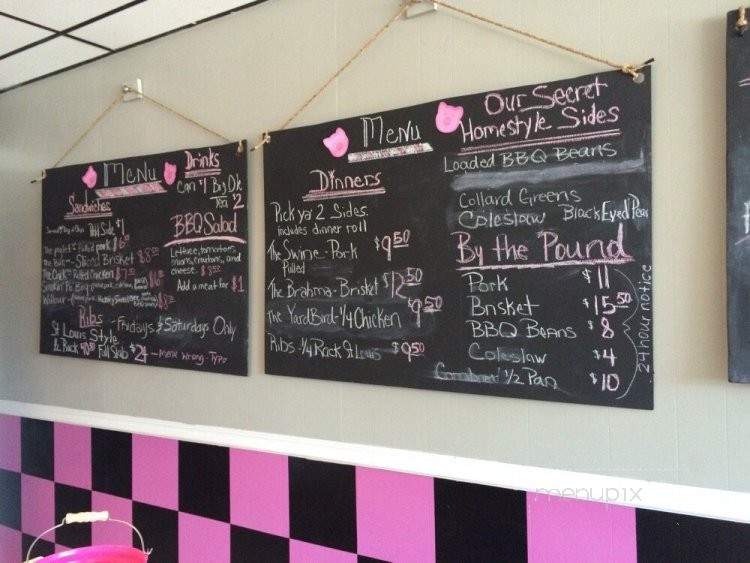 Menu
Drinks
Can $1 Big Ole
Tea $2
Sandwiches
Add Side $1
BBQ Salad
Lettuce, tomatoes,
onions, croutons, and
cheese.
Add a meat for $1
Pulled pork
Sliced Brisket
Pulled Chicken
Ribs - Fridays & Saturdays Only
St Louis Style
Full Slab
Menu Wrong - Typo
Menu
Dinners
Pick ya' 2 Sides
includes dinner roll
The Swine - Pork $9.50
Pulled
The Brahma - Brisket $12.50
The YardBird - 1/4 Chicken $9.50
Ribs - 1/4 Rack St Louis $9.50
Our Secret
Homestyle Sides
Loaded BBQ Beans
Collard Greens
Coleslaw Black Eyed Peas
By the Pound
Pork $11
Brisket $15.50
BBQ Beans $8
Coleslaw $4
Cornbread 1/2 Pan $10
24 hour notice
menupix